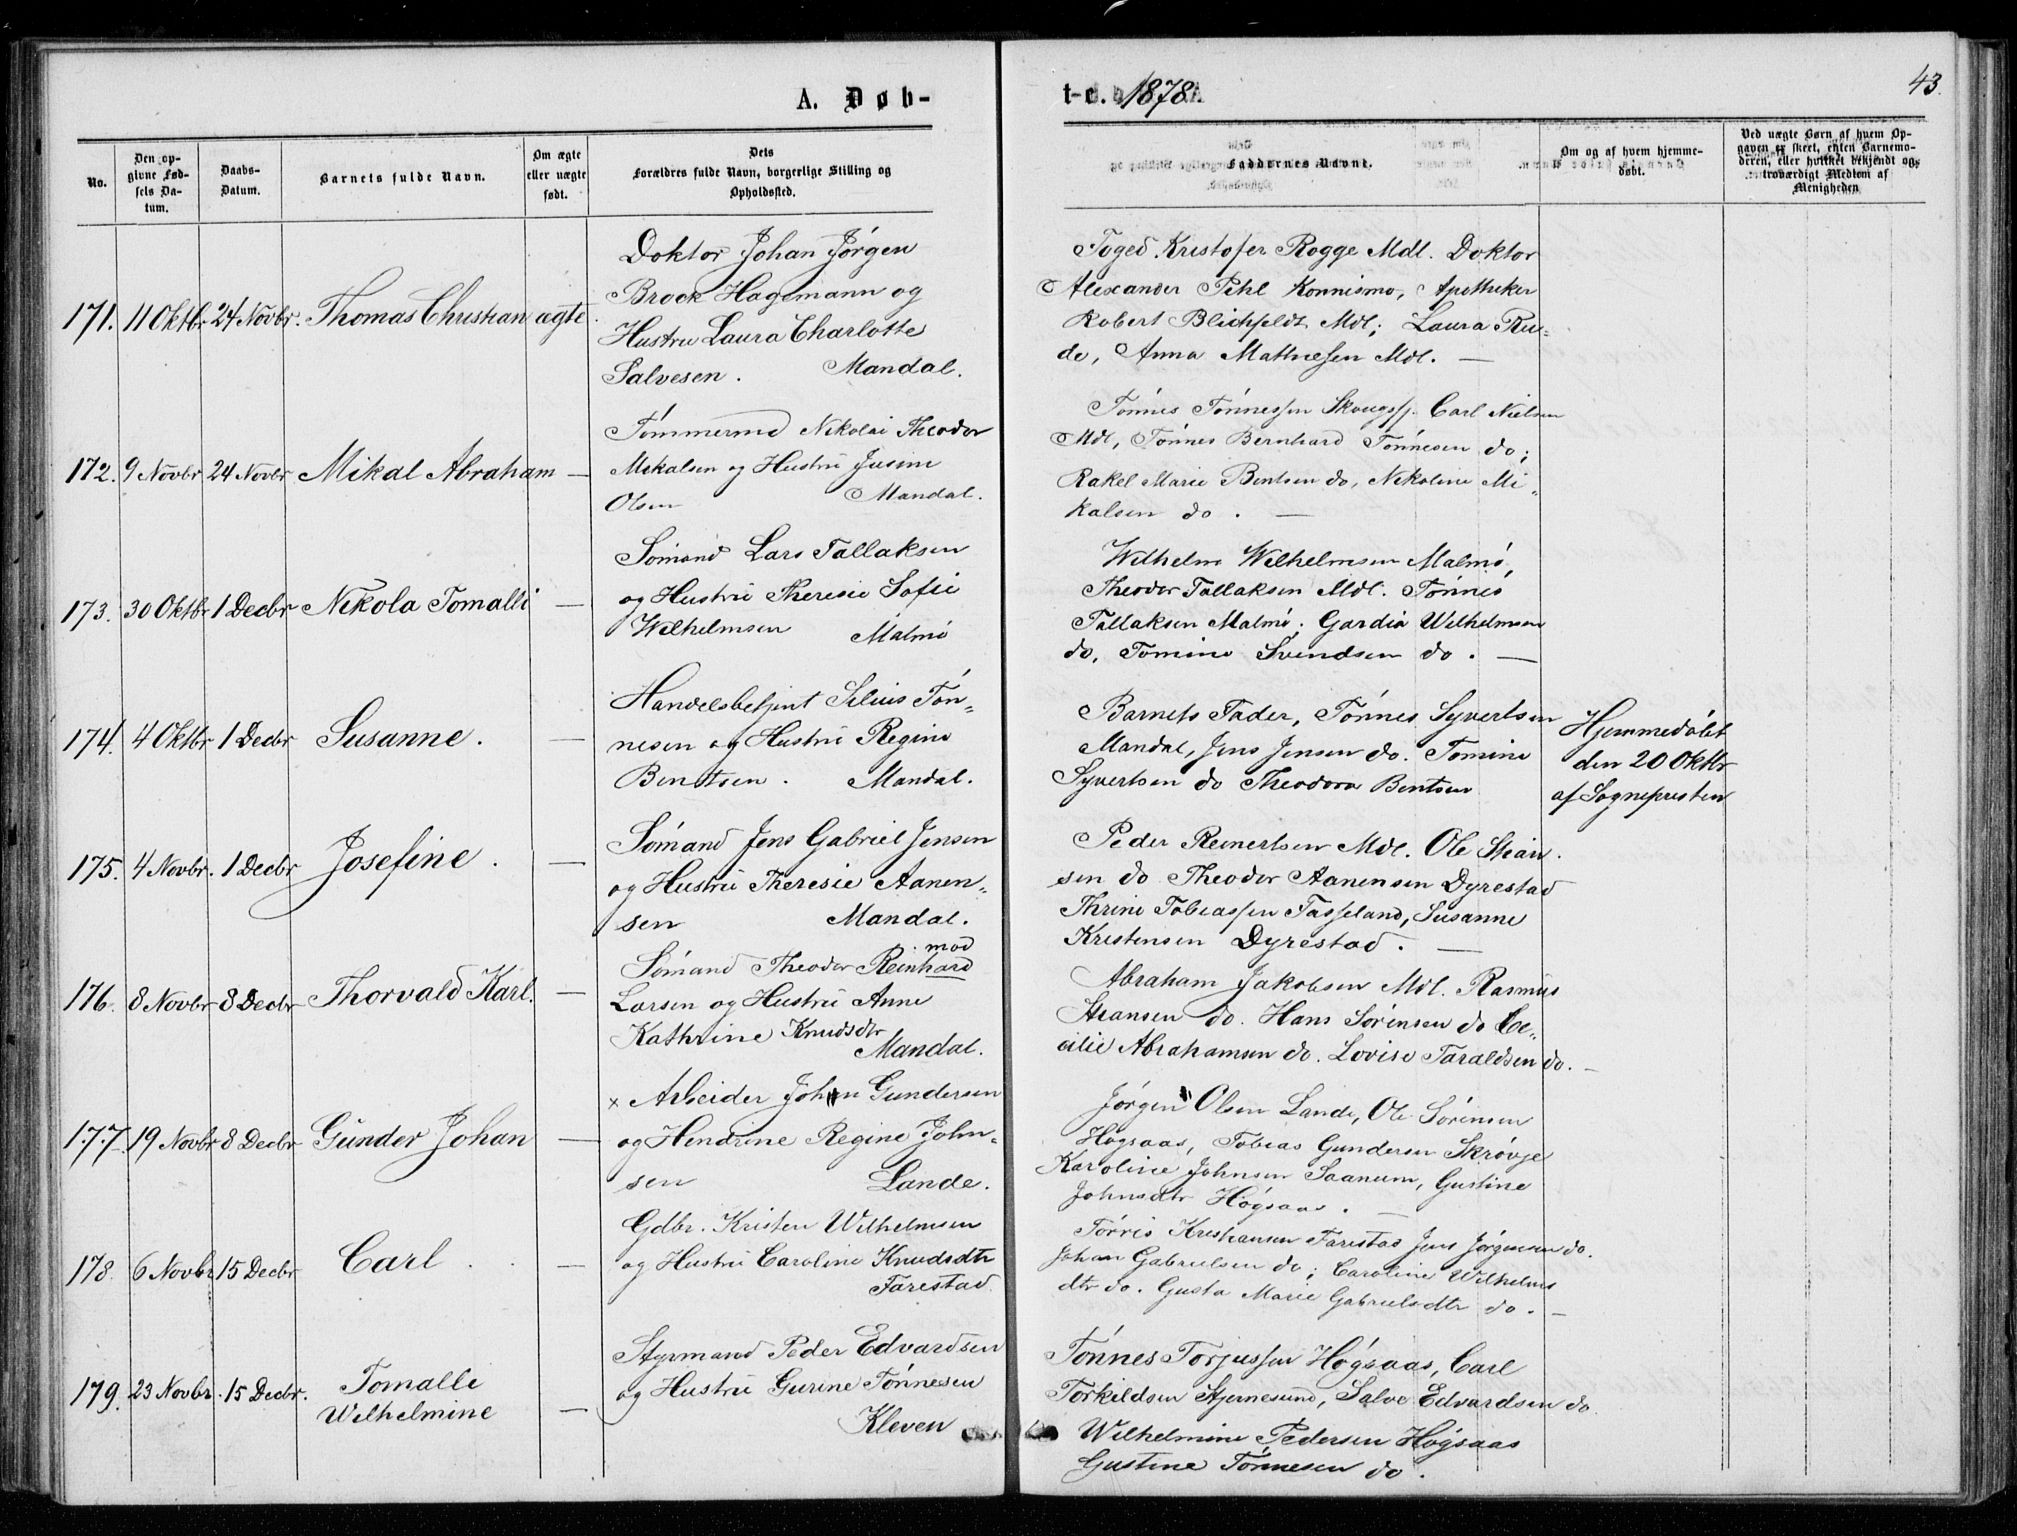 A. Døb-
No.
Den opgivne Fødsels Datum.
Daabs-Datum.
Barnets fulde Navn.
Om ægte eller uægte født.
Dets Forældres fulde Navn, borgerlige Stilling og Opholdssted.
171. 11 Oktbr 24 Novbr. Thomas Christian ægte.
Doktor Johan Jørgen
Brock Hagemann og
Hustru Laura Charlotte
Salvesen. Mandal.
172. 9 Novbr 24 Novbr Mikal Abraham —
Tømmermd Nikolai Theodor
Mikalsen og Hustru Jusine
Olsen Mandal.
173. 30 Oktbr 1 Decbr Nikola Tomalli —
Sømand Lars Tallaksen
og Hustru Theresie Sofie
Wilhelmsen Malmø
174. 4 Oktbr 1 Decbr Susanne. —
Handelsbetjent Silius Tøn-
nesen og Hustru Regine
Bentsen. Mandal.
175. 4 Novbr. 1 Decbr Josefine. —
Sømand Jens Gabriel Jensen
og Hustru Theresie Aanen-
sen Mandal.
176. 8 Novbr 8 Decbr Thorvald Karl. —
mod
Sømand Theodor Reinhard
Larsen og Hustru Anne
Kathrine Knudsdtr
Mandal.
177. 19 Novbr 8 Decbr Gunder Johan —
x Arbeider John Gundersen
og Hendrine Regine John-
sen Lande.
178. 6 Novbr 15 Decbr Carl. —
Gdbr. Kristen Wilhelmsen
og Hustru Caroline Knudsdtr
Farestad
179. 23 Novbr. 15 Decbr. Tomalli
Wilhelmine —
Styrmand Peder Edvardsen
og Hustru Gurine Tønnesen
Kleven
t-e. 1878.
43.
Faddernes Navne.
Om og af hvem hjemmedøbt.
Ved uægte Børn af hvem Opgaven er skeet, enten Barnemoderen, eller hvilket bekjendt og troværdigt Medlem af Menigheden
Foged Kristofer Rogge Mdl. Doktor
Alexander Pihl Konnismo, Apotheker
Robert Blichfeldt Mdl; Laura Ru-
de, Anna Mathiesen Mdl. —
Tønnes Tønnessen Carl Nielsen
Mdl, Tønnes Bernhard Tønnesen do;
Rakel Marie Bentsen do, Nikoline Mi-
kalsen do. —
Wilhelm Wilhelmsen Malmø,
Theodor Tallaksen Mdl. Tønnes
Tallaksen Malmø. Gardia Wilhelmsen
do, Tomine Svendsen do. —
Barnets Fader, Tønnes Syvertsen
Mandal, Jens Jensen do. Tomine
Syvertsen do Theodora Bentsen
Hjemmedøbt
den 20 Oktbr
af Sognepresten
Peder Reinertsen Mdl. Ole Stian-
sen do Theodor Aanensen Dyrestad
Thrine Tobiassen Fasseland, Susanne
Kristensen Dyrestad. —
Abraham Jakobsen Mdl. Rasmus
Stiansen do. Hans Sørensen do Ce-
cilie Abrahamsen do. Lovise Taraldsen do. —
Jørgen Olsen Lande, Ole Sørensen
Høgsaas, Tobias Gundersen Skrøvje
Karoline Johnsen Saanum, Gustine
Johnsdtr Høgsaas. —
Tørris Kristiansen Farestad Jens Jørgensen do.
Johan Gabrielsen do; Caroline Wilhelms
dtr do. Gusta Marie Gabrielsdtr do. —
Tønnes Torjussen Høgsaas, Carl
Torkildsen Stjernesund, Salve Edvardsen do
Wilhelmine Pedersen Høgsaas
Gustine Tønnesen do.